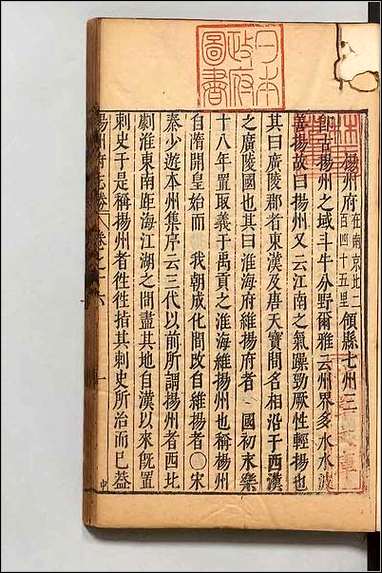 日本
政府
圖書
揚州府在南京北二百四十五里領縣七州三
即古揚州之域斗牛分野爾雅云州界多水水波
揚故曰揚州又云江南之氣躁勁厥性輕揚也
其曰廣陵郡者東漢及唐天寶間名相沿于西漢
之廣陵國也其曰淮海府維揚府者 國初未樂
十八年置取義于禹貢之淮海維揚州也稱揚州
自隋開皇始而 我朝成化間改自維揚者○宋
秦少遊本州集序云三代以前所謂揚州者西北
劇淮東南距海江湖之間盡其地自漢以來既置
刺史于是稱揚州者徃徃指其刺史所治而已蓋
揚州府志卷 卷之十六 一